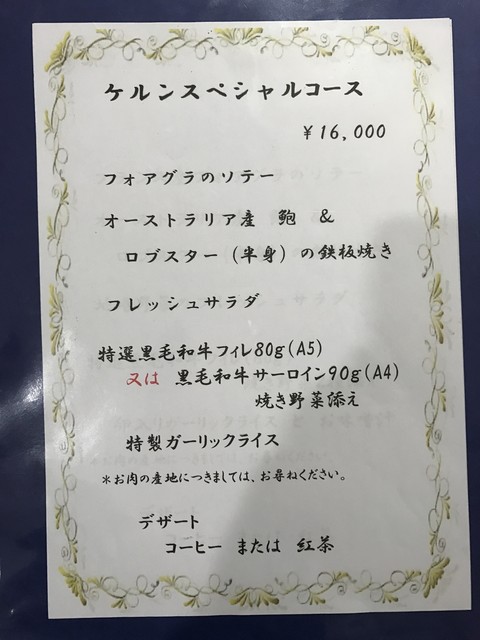 ケルンスペシャルコース
¥16,000
フォアグラのソテー
オーストラリア産 鮑 &
ロブスター(半身)の鉄板焼き
フレッシュサラダ
特選黒毛和牛フィレ80g(A5)
又は 黒毛和牛サーロイン90g(A4)
焼き野菜添え
特製ガーリックライス
*お肉の産地につきましては、お尋ねください。
デザート
コーヒー または 紅茶